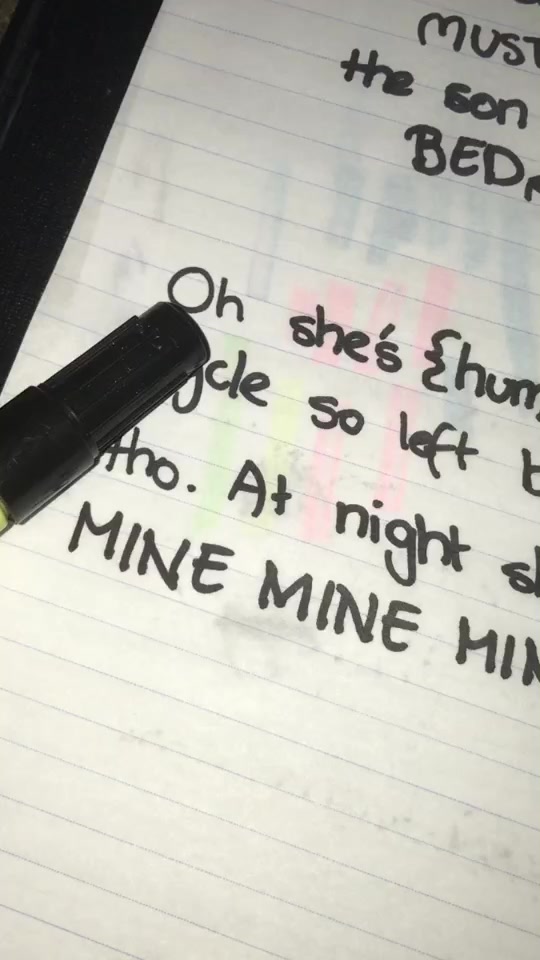 MUST
the son
BED
Oh she's {hum
so left
tho. At night
MINE MINE